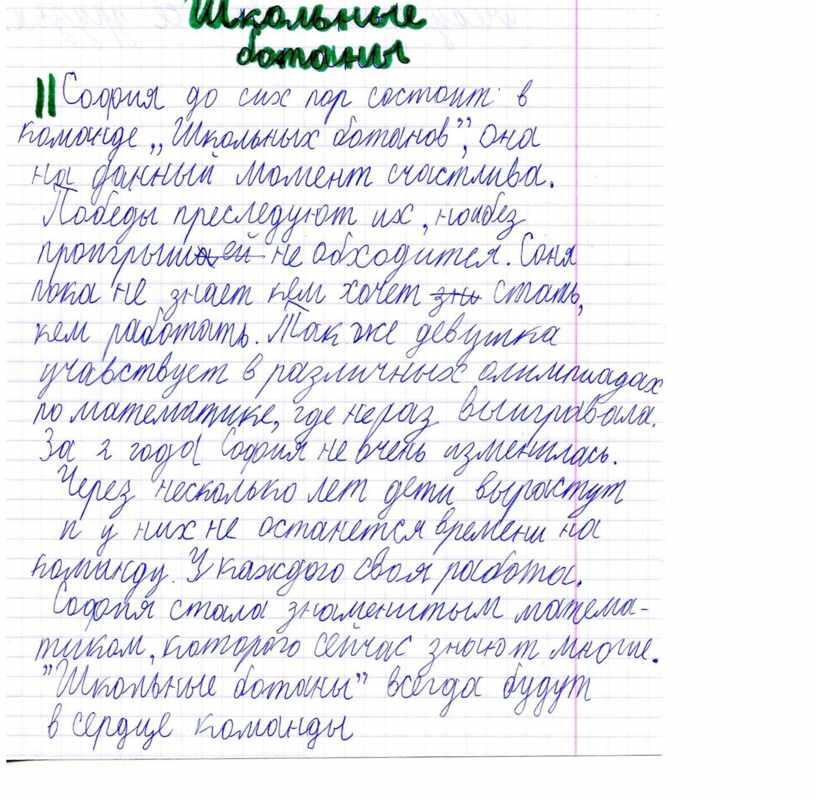 Школьные
ботаны
София до сих пор состоит в
команде „Школьных ботанов”, она
на данный момент счастлива.
Победы преследуют их, но без
проигрышей не обходится. Соня
пока не знает кем хочет стать,
кем работать. Так же девушка
учавствует в различных олимпиадах
по математике, где не раз выигравала.
За 2 года София не очень изменилась.
Через несколько лет дети вырастут
и у них не останется времени на
команду. У каждого своя работа.
София стала знаменитым матема-
тиком, которого сейчас знают многие.
"Школьные ботаны" всегда будут
в сердце команды